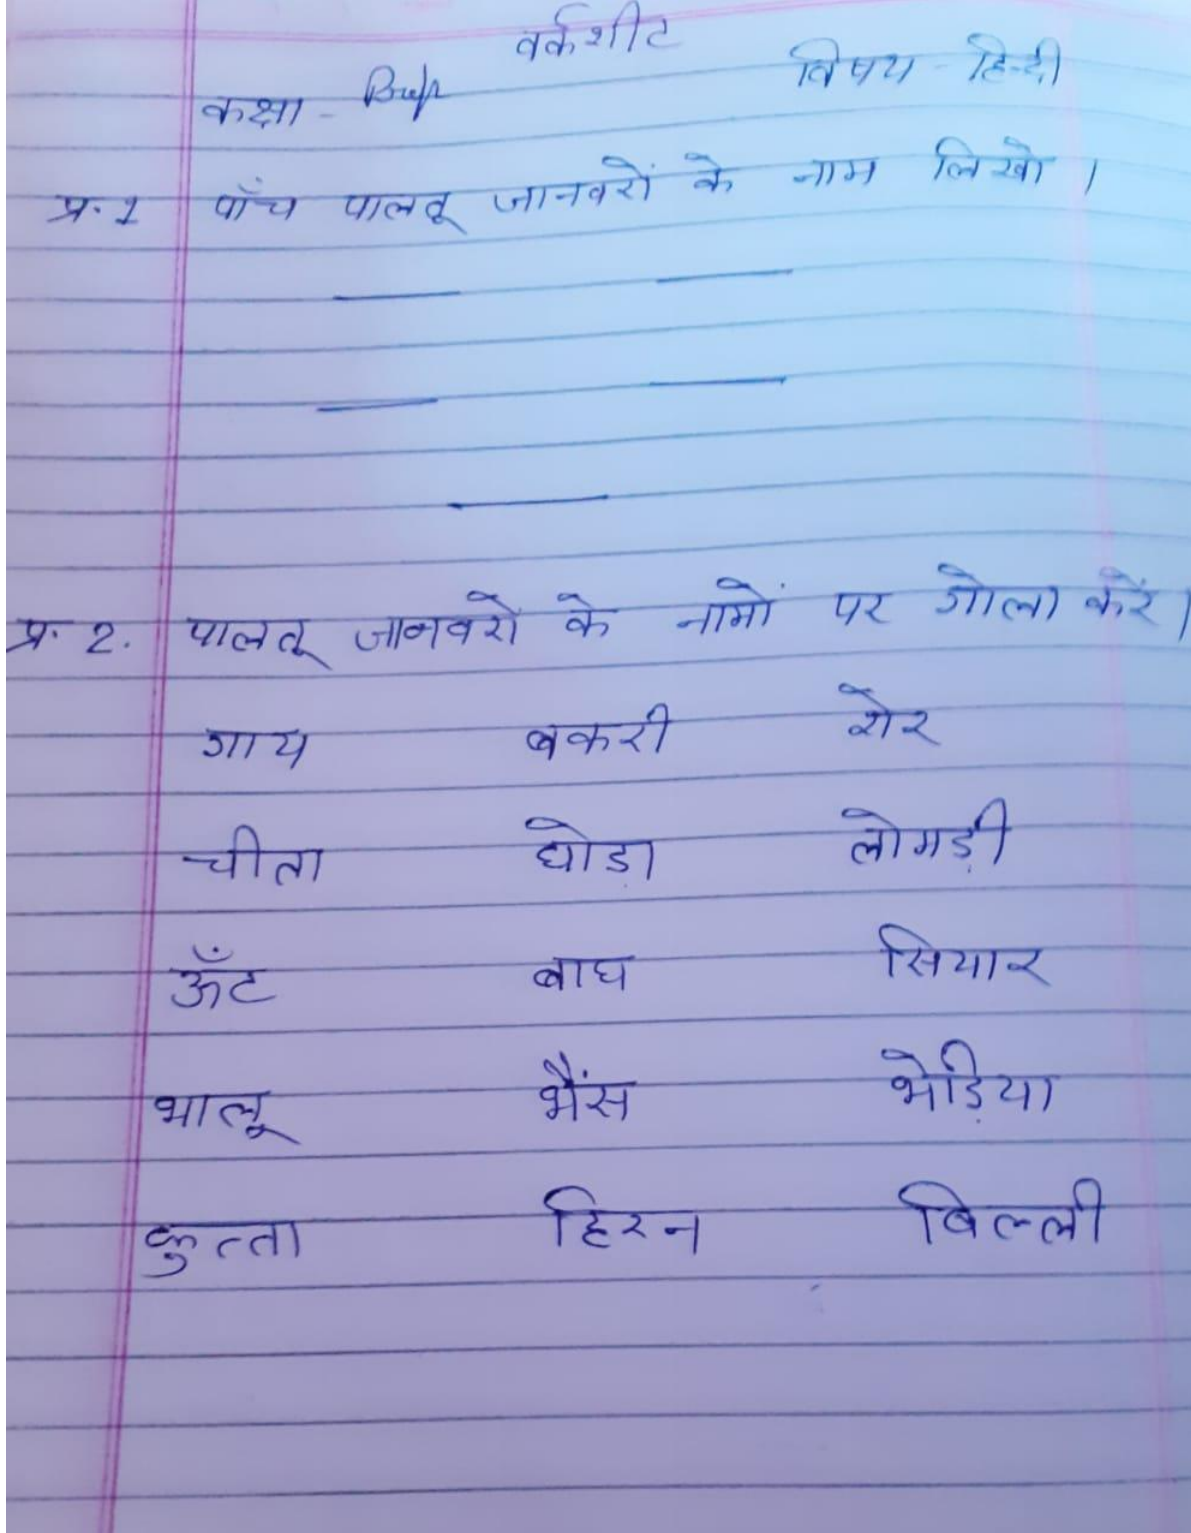 वर्कशीट
कक्षा - Prep विषय - हिन्दी
प्र.1 पाँच पालतू जानवरों के नाम लिखो।
प्र. 2. पालतू जानवरों के नामों पर गोला करें।
गाय बकरी शेर
चीता घोड़ा लोमड़ी
ऊँट बाघ सियार
भालू भैंस भेड़िया
कुत्ता हिरन बिल्ली